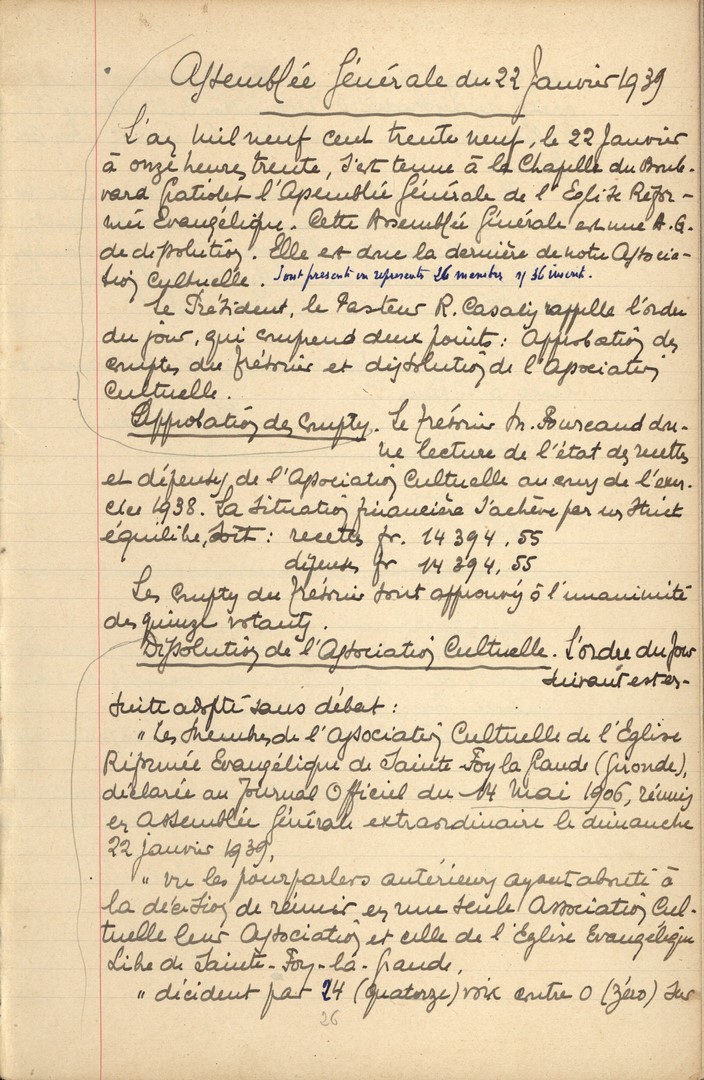 Assemblée Générale du 22 Janvier 1939
L'an mil neuf cent trente neuf, le 22 Janvier
à onze heures trente, s'est tenue à la Chapelle du Boule-
vard Gratiolet l'Assemblée Générale de l'Eglise Réfor-
mée Evangélique. Cette Assemblée Générale est une A.G.
de dissolution. Elle est donc la dernière de notre Associa-
tion Cultuelle. Sont présents ou représentés 26 membres s/ 36 inscrits.
Le Président, le Pasteur R. Casalis rappelle l'ordre
du jour, qui comprend deux points : Approbation des
comptes du trésorier et dissolution de l'Association
Cultuelle.
Approbation des Comptes. Le trésorier M. Fourcaud don-
ne lecture de l'état des recettes
et dépenses de l'Association Cultuelle au cours de l'exer-
cice 1938. La situation financière s'achève par un strict
équilibre, soit : recettes fr. 14 394,55
dépenses fr 14 394,55
Les comptes du trésorier sont approuvés à l'unanimité
des quinze votants.
Dissolution de l'Association Cultuelle. L'ordre du jour
suivant est en-
suite adopté sans débat :
" Les Membres de l'Association Cultuelle de l'Eglise
Réformée Evangélique de Sainte-Foy la Grande (Gironde),
déclarée au Journal Officiel du 14 mai 1906, réunis
en Assemblée Générale extraordinaire le dimanche
22 janvier 1939,
" vu les pourparlers antérieurs ayant abouti à
la décision de réunir en une seule Association Cul-
tuelle leur Association et celle de l'Eglise Evangélique
Libre de Sainte-Foy-la-Grande,
" décident par 24 (quatorze) voix contre 0 (zéro) sur
26